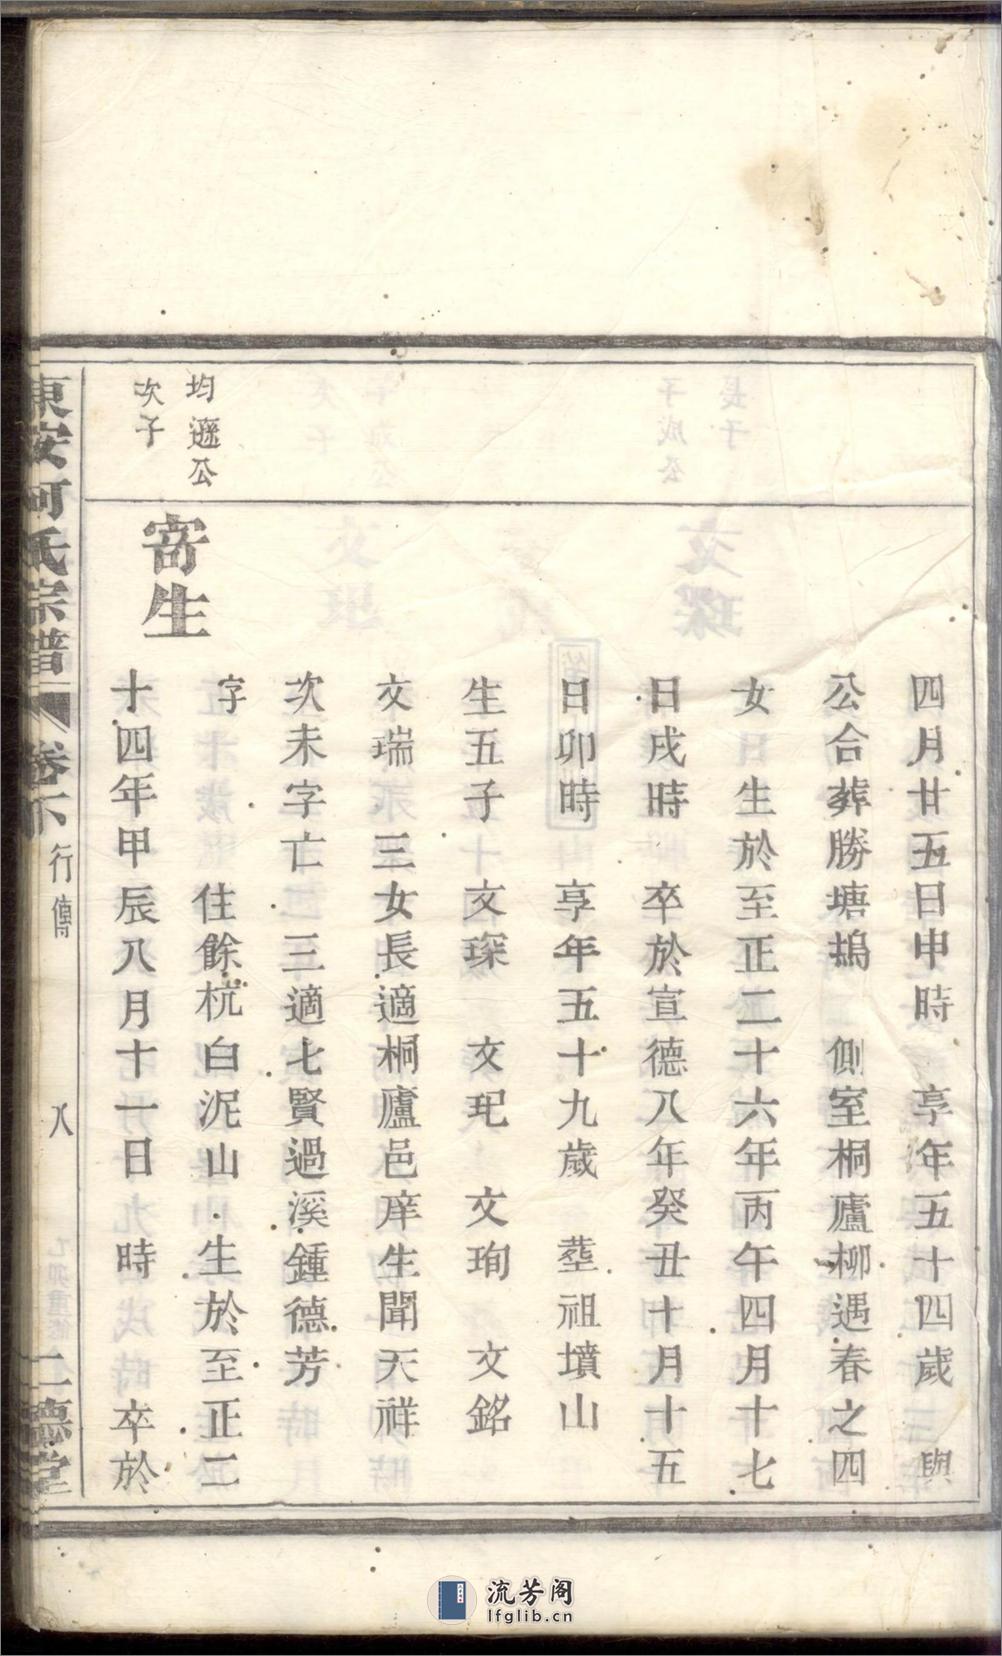 四月廿五日申時 享年五十四歲 與
公合葬勝塘塢 側室桐廬柳遇春之四
女 生於至正二十六年丙午四月十七
日戌時 卒於宣德八年癸丑十月十五
日卯時 享年五十九歲 塟祖墳山
生五子 文琛 文玘 文珣 文銘
文瑞 三女長適桐廬邑庠生聞天祥
次未字亡 三適七賢過溪鍾德芳
均遜公
次子
寄生
字 住餘杭白泥山 生於至正二
十四年甲辰八月十一日 時 卒於
東安何氏宗譜 卷下 行傳 八 二德堂
流芳阁
lfglib.cn